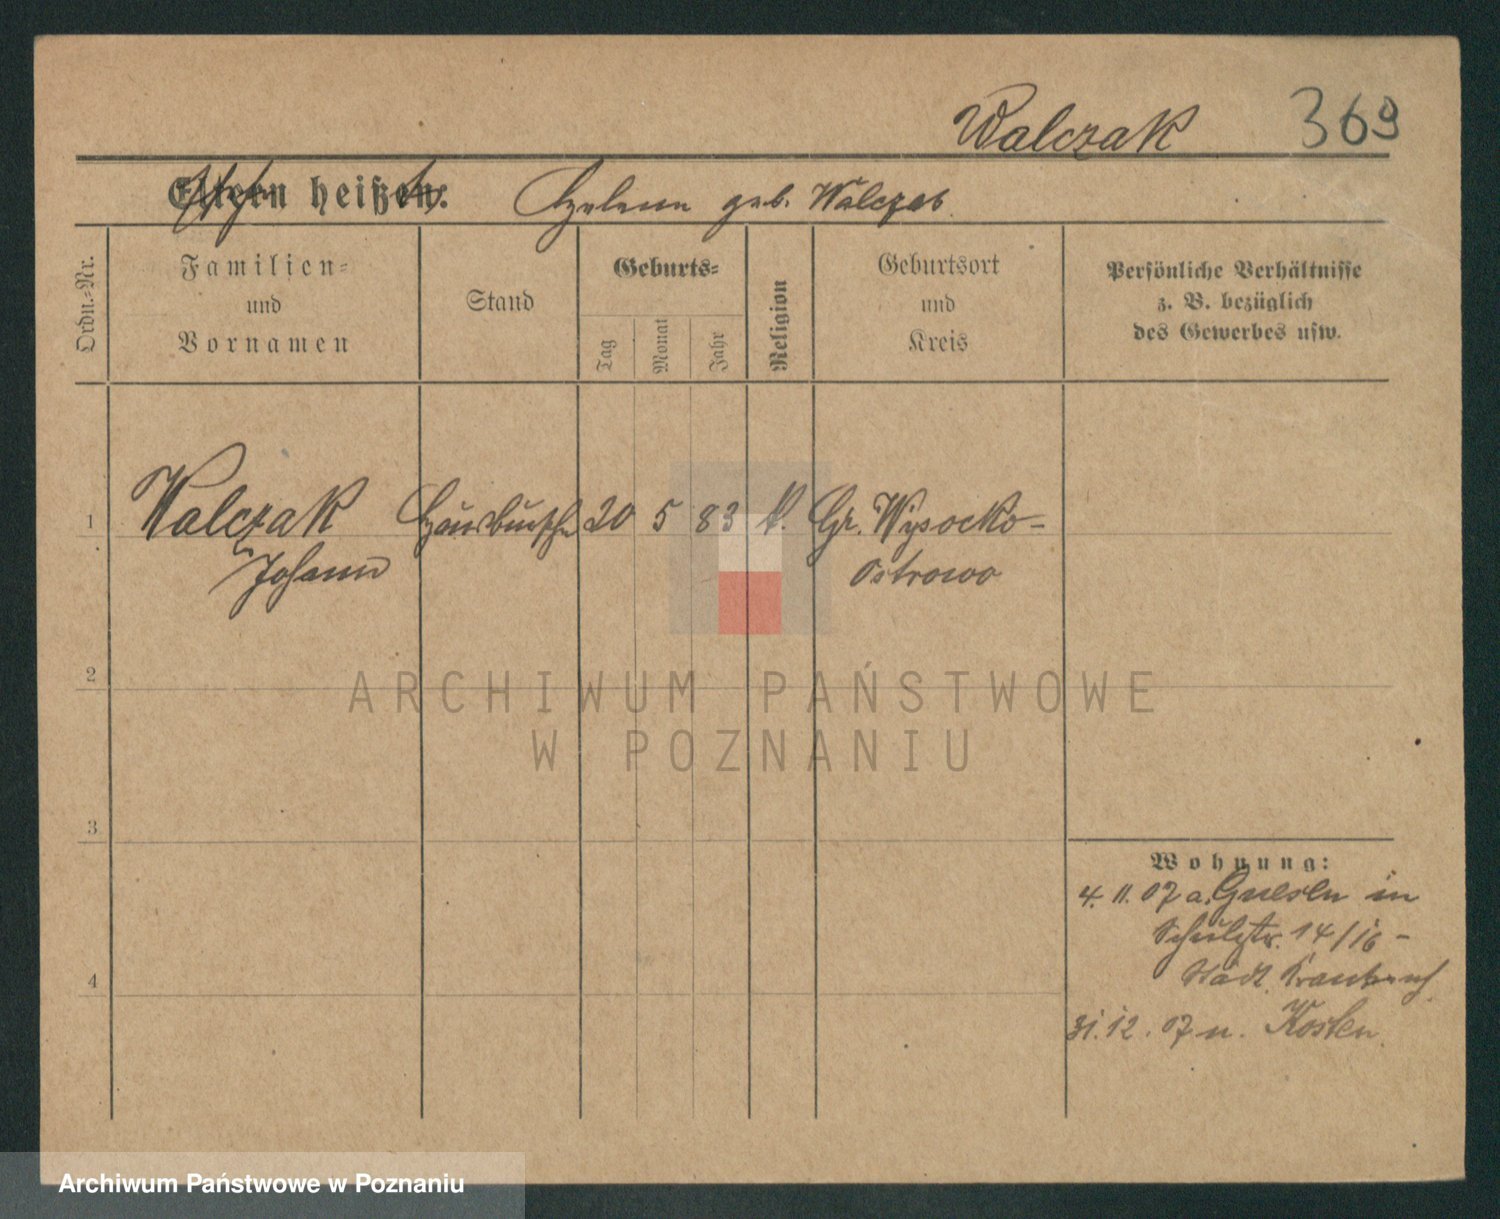 Walczak 369
Eltern heißen: Helene geb. Walczak
Ordn.-Nr.
Familien-
und
Vornamen
Stand
Geburts-
Tag
Monat
Jahr
Religion
Geburtsort
und
Kreis
Persönliche Verhältnisse
z. B. bezüglich
des Gewerbes usw.
1 Walczak Hausbursche 20 5 83 k. Gr. Wysocko-
Johann Ostrowo
2
3
4
Wohnung:
4. 11. 07 a. Gnesen in
Schulstr. 14/16 -
Städt.
31. 12. 07 n. Kosten
ARCHIWUM PAŃSTWOWE
W POZNANIU
Archiwum Państwowe w Poznaniu